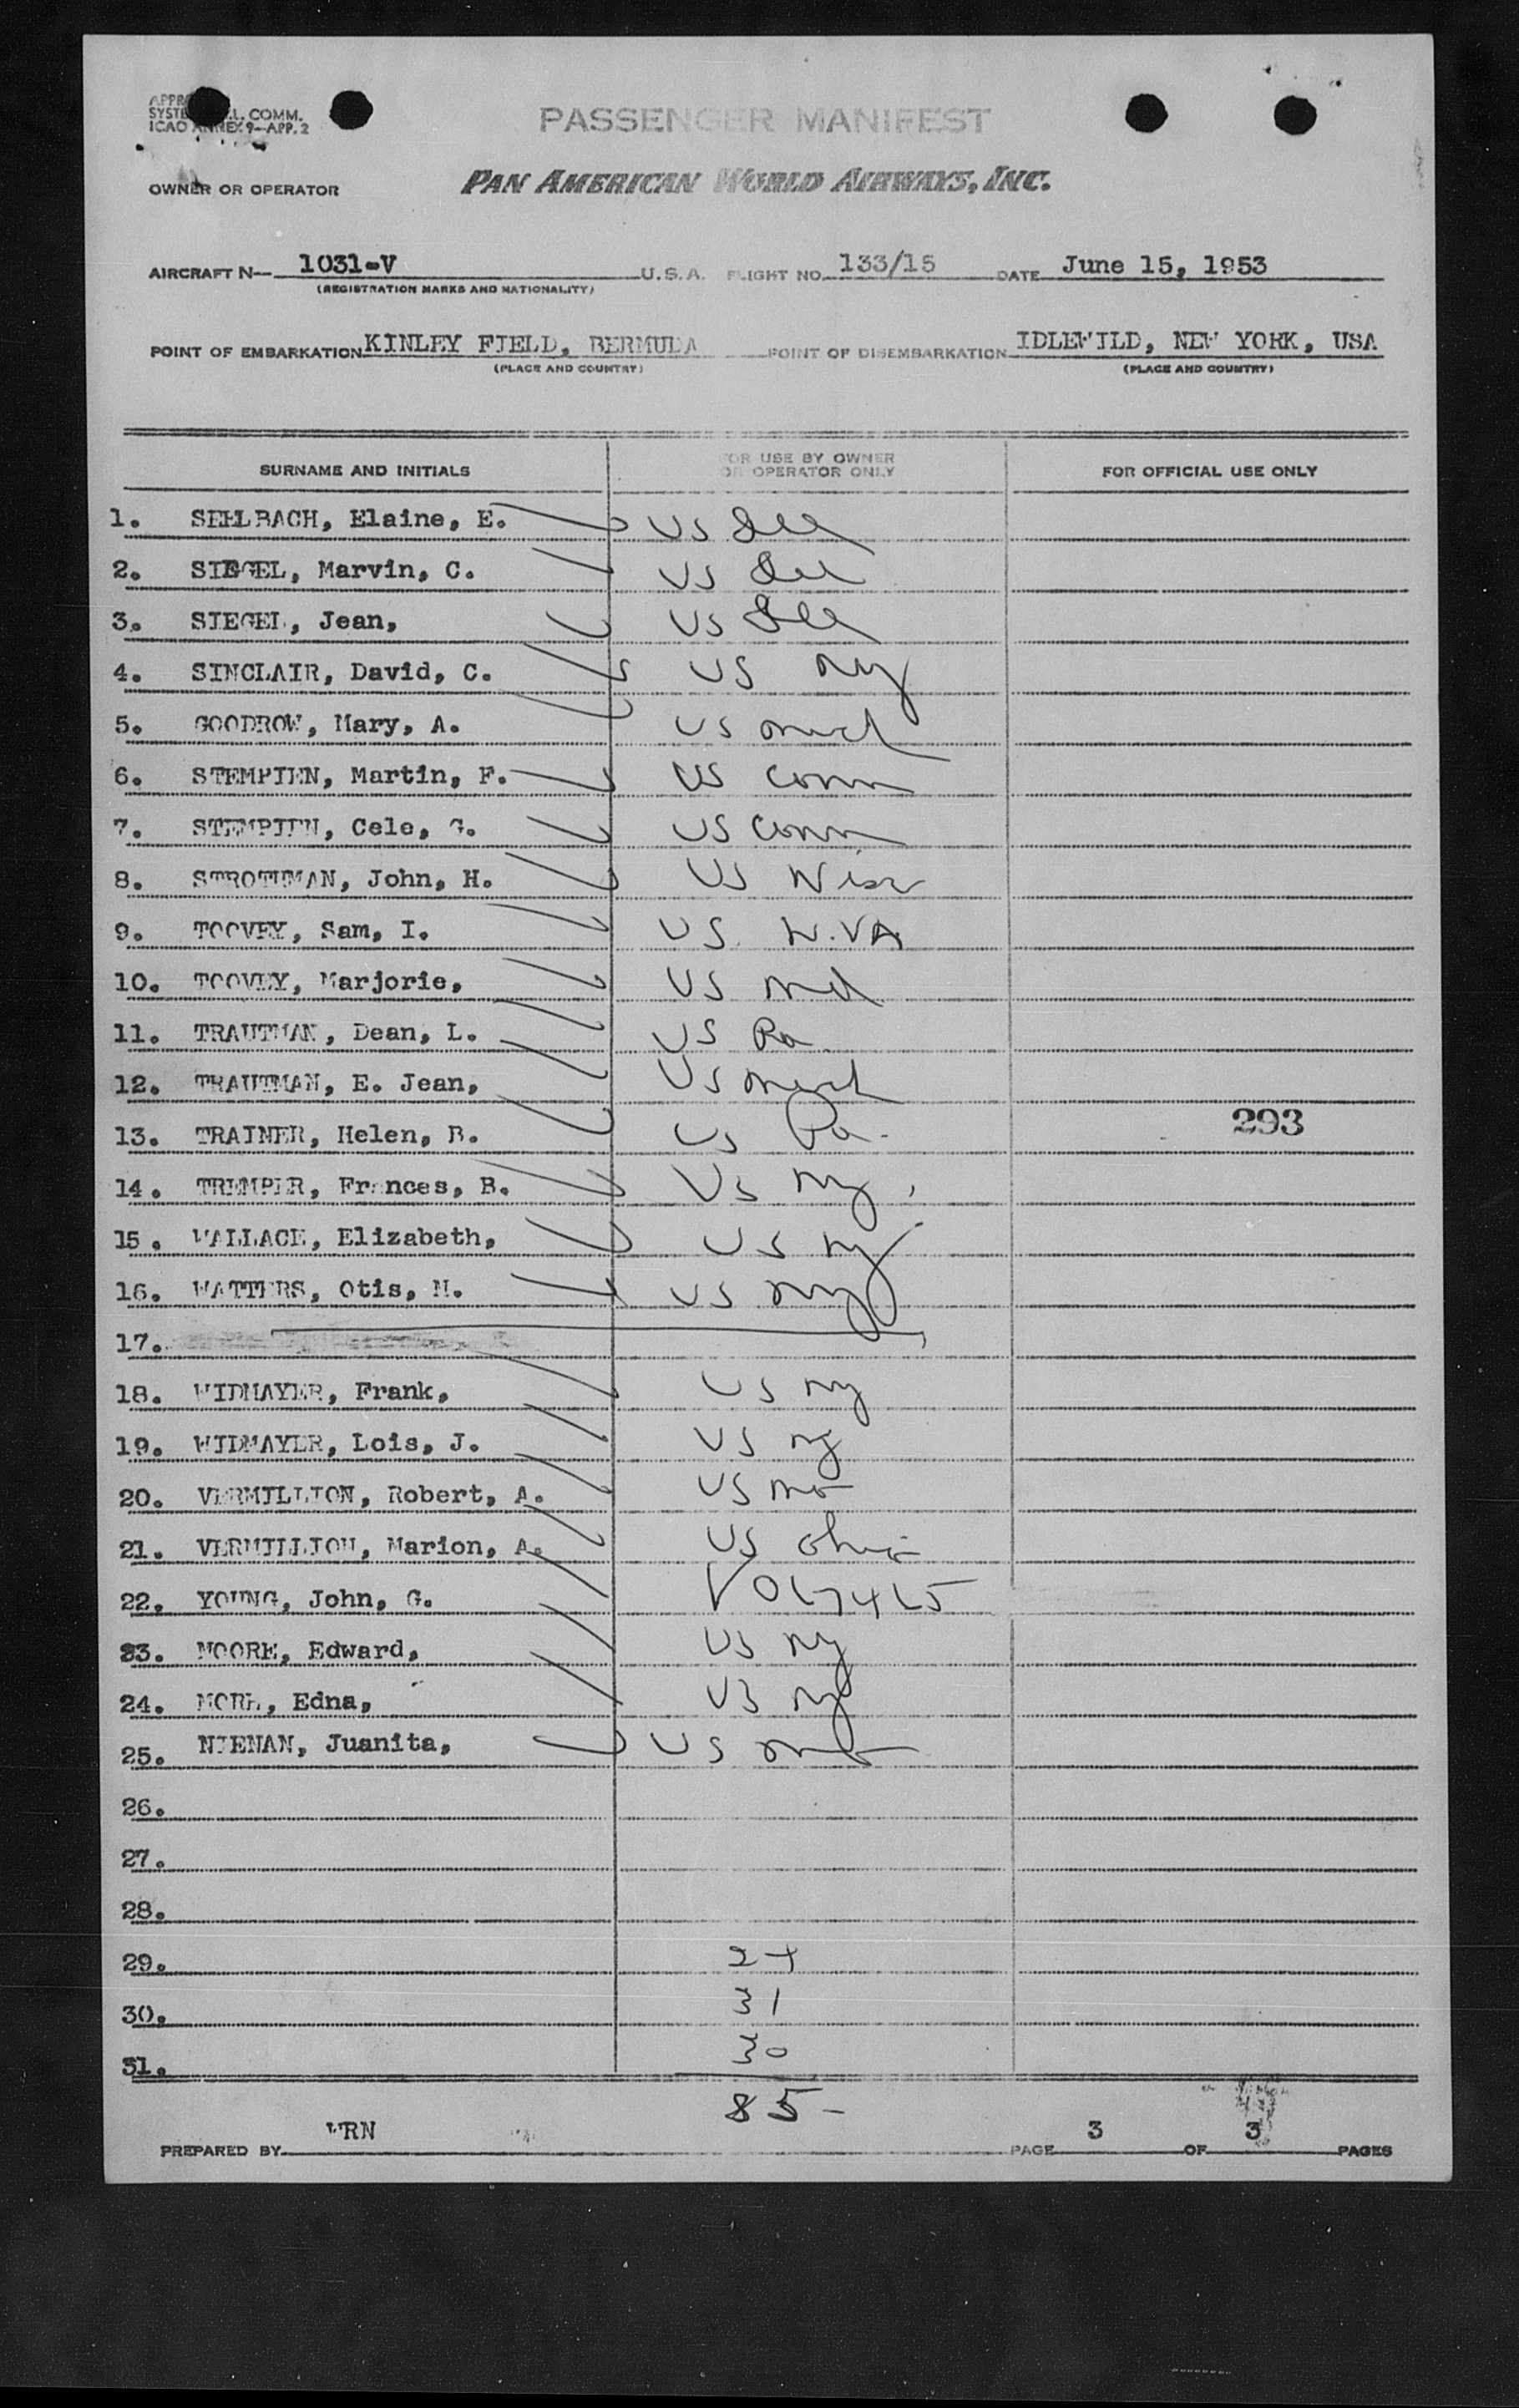 PASSENGER MANIFEST
ICAO ANNEX 9—APP. 2
OWNER OR OPERATOR PAN AMERICAN WORLD AIRWAYS, INC.
AIRCRAFT N— 1031-V U.S.A. FLIGHT NO. 133/15 DATE June 15, 1953
(REGISTRATION MARKS AND NATIONALITY)
POINT OF EMBARKATION KINLEY FIELD, BERMUDA POINT OF DISEMBARKATION IDLEWILD, NEW YORK, USA
(PLACE AND COUNTRY) (PLACE AND COUNTRY)
SURNAME AND INITIALS FOR USE BY OWNER OR OPERATOR ONLY FOR OFFICIAL USE ONLY
1. SELLBACH, Elaine, E. US Ill
2. SIEGEL, Marvin, C. US Ill
3. SIEGEL, Jean, US Ill
4. SINCLAIR, David, C. US NY
5. GOODROW, Mary, A. US Mich
6. STEMPIEN, Martin, F. US Conn
7. STEMPIEN, Cele, G. US Conn
8. STROTHMAN, John, H. US Wisc
9. TOOVEY, Sam, I. US W.VA
10. TOOVEY, Marjorie, US Md
11. TRAUTMAN, Dean, L. US Pa
12. TRAUTMAN, E. Jean, US Mich
13. TRAINER, Helen, B. US Pa. 293
14. TREMPER, Frances, B. US NY
15. WALLACE, Elizabeth, US NY
16. WATTERS, Otis, M. US NY
17.
18. WIDMAYER, Frank, US NY
19. WIDMAYER, Lois, J. US NY
20. VERMILLION, Robert, A. US Mo
21. VERMILLION, Marion, A. US Ohio
22. YOUNG, John, G.
23. MOORE, Edward, US NY
24. MORE, Edna, US NY
25. NIENAN, Juanita, US Mo
26.
27.
28.
29. 24
30. 31
31. 30
85-
PREPARED BY WRN PAGE 3 OF 3 PAGES